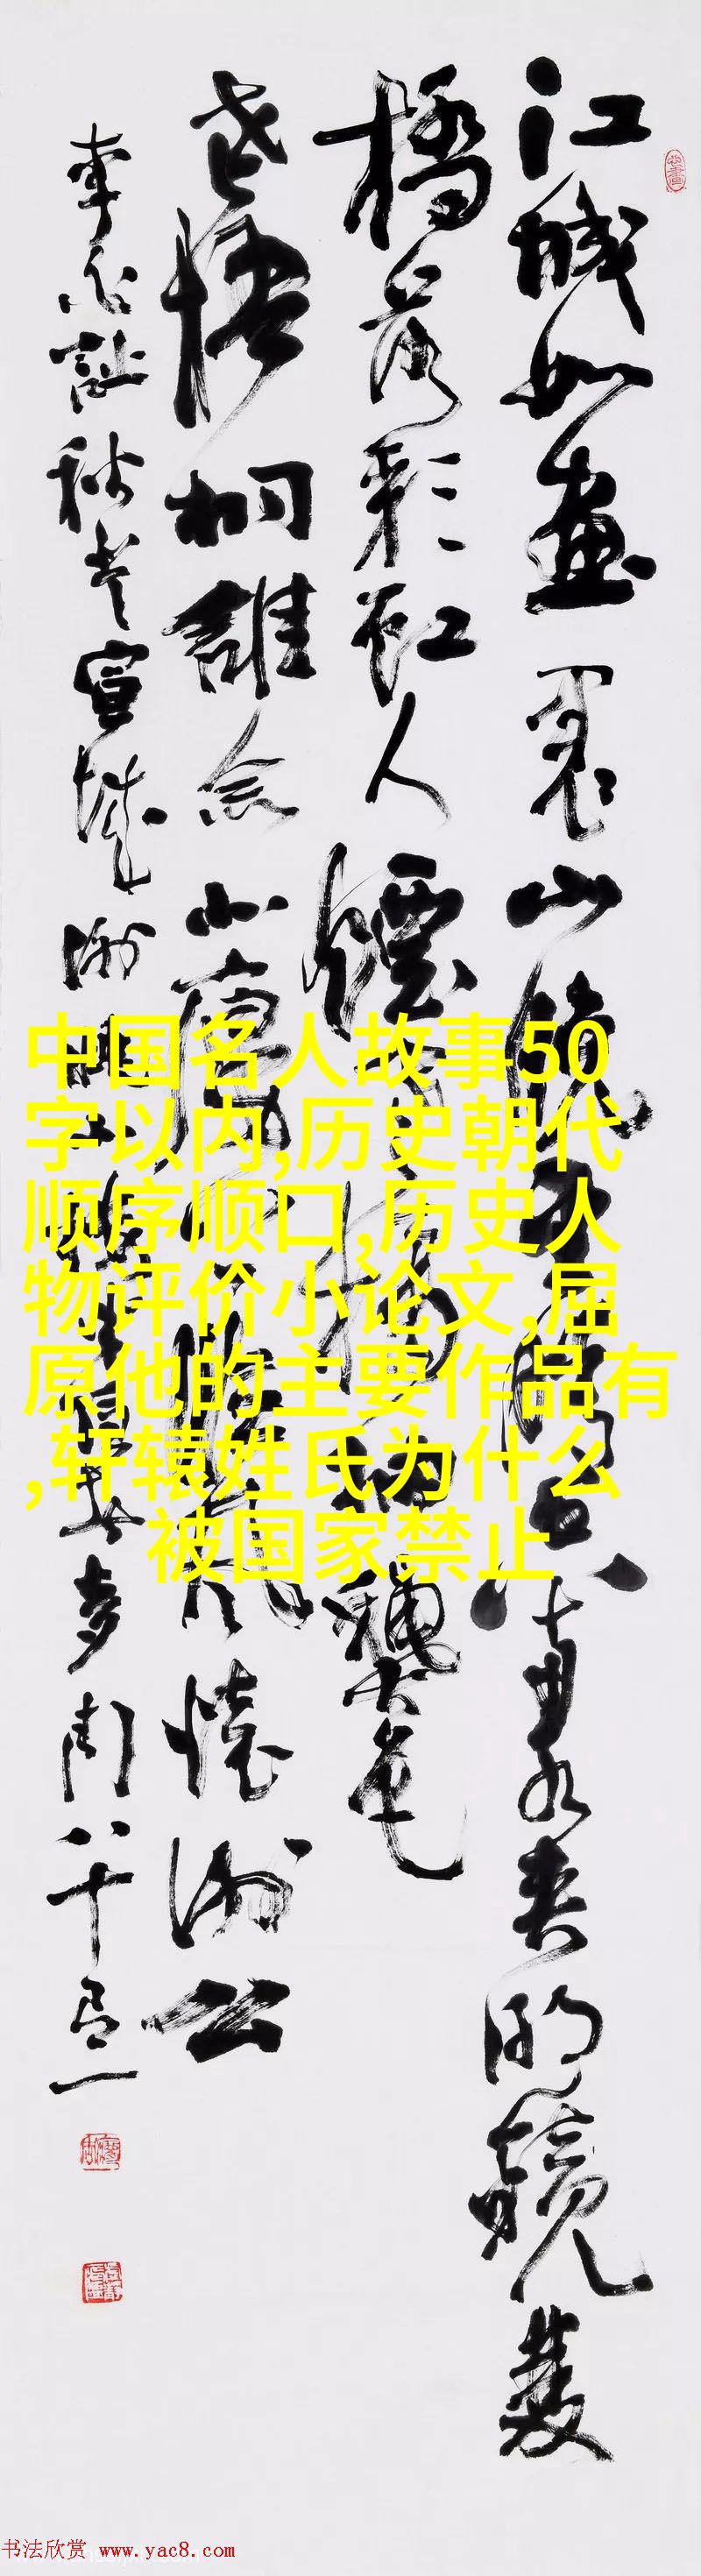 江城如畫裏山曉望晴空兩水夾明鏡雙
橋落彩虹人煙寒橘柚秋色
老梧桐誰念北樓上臨風懷謝公
李白詩秋登宣城謝朓北樓
八十
中国名人故事50
字以内,历史朝代
顺序顺口,历史人
物评价小论文,屈
原他的主要作品有
,轩辕姓氏为什么
被国家禁止
书法欣赏 www.yac8.com